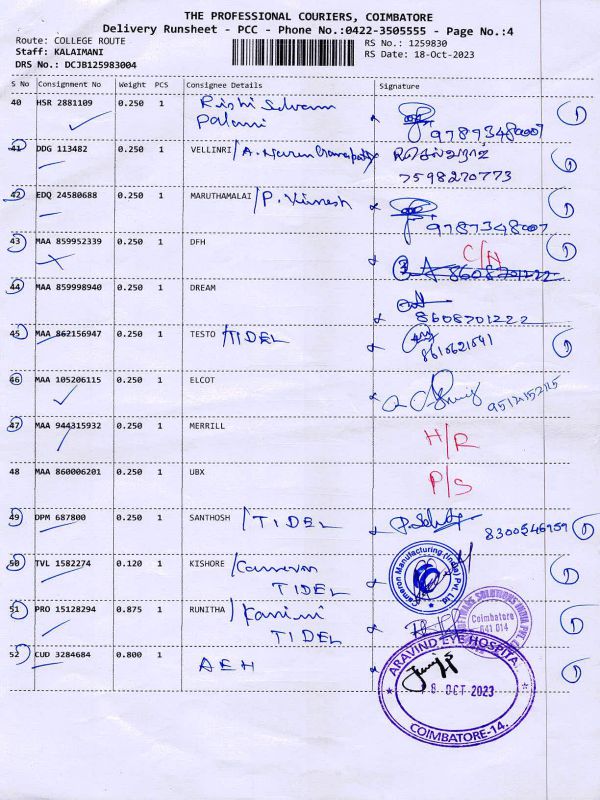 THE PROFESSIONAL COURIERS, COIMBATORE
Delivery Runsheet - PCC - Phone No.:0422-3505555 - Page No.:4
Route: COLLEGE ROUTE RS No.: 1259830
Staff: KALAIMANI RS Date: 18-Oct-2023
DRS No.: DCJB125983004
S No Consignment No Weight PCS Consignee Details Signature
40 HSR 2881109 0.250 1 Rishi Selvam
Palani
41 DDG 113482 0.250 1 VELLINRI
7598270773
42 EDQ 24580688 0.250 1 MARUTHAMALAI / P. Vignesh
43 MAA 859952339 0.250 1 DFH
8608701222
44 MAA 859998940 0.250 1 DREAM
8608701222
45 MAA 862156947 0.250 1 TESTO TIDEL
46 MAA 105206115 0.250 1 ELCOT
47 MAA 944315932 0.250 1 MERRILL H/R
48 MAA 860006201 0.250 1 UBX P/S
49 DPM 687800 0.250 1 SANTHOSH / TIDEL 8300546959
50 TVL 1582274 0.120 1 KISHORE / Cameron
TIDEL
Cameron Manufacturing (India) Pvt. Ltd
51 PRO 15128294 0.875 1 RUNITHA /
TIDEL
SOLUTIONS INDIA PVT
Coimbatore
641 014
52 CUD 3284684 0.800 1 AEH
ARAVIND EYE HOSPITAL
18 OCT 2023
COIMBATORE-14.